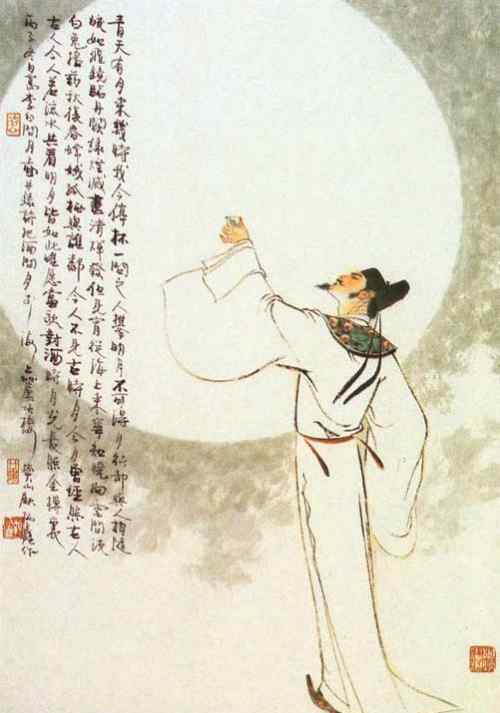 青天有月來幾時我今停杯一問之人攀明月不可得月行卻與人相隨
皎如飛鏡臨丹闕綠煙滅盡清輝發但見宵從海上來寧知曉向雲間沒
白兔搗藥秋復春嫦娥孤栖與誰鄰今人不見古時月今月曾經照古人
古人今人若流水共看明月皆如此唯愿當歌對酒時月光長照金樽裏
李白問月圖并錄把酒問月